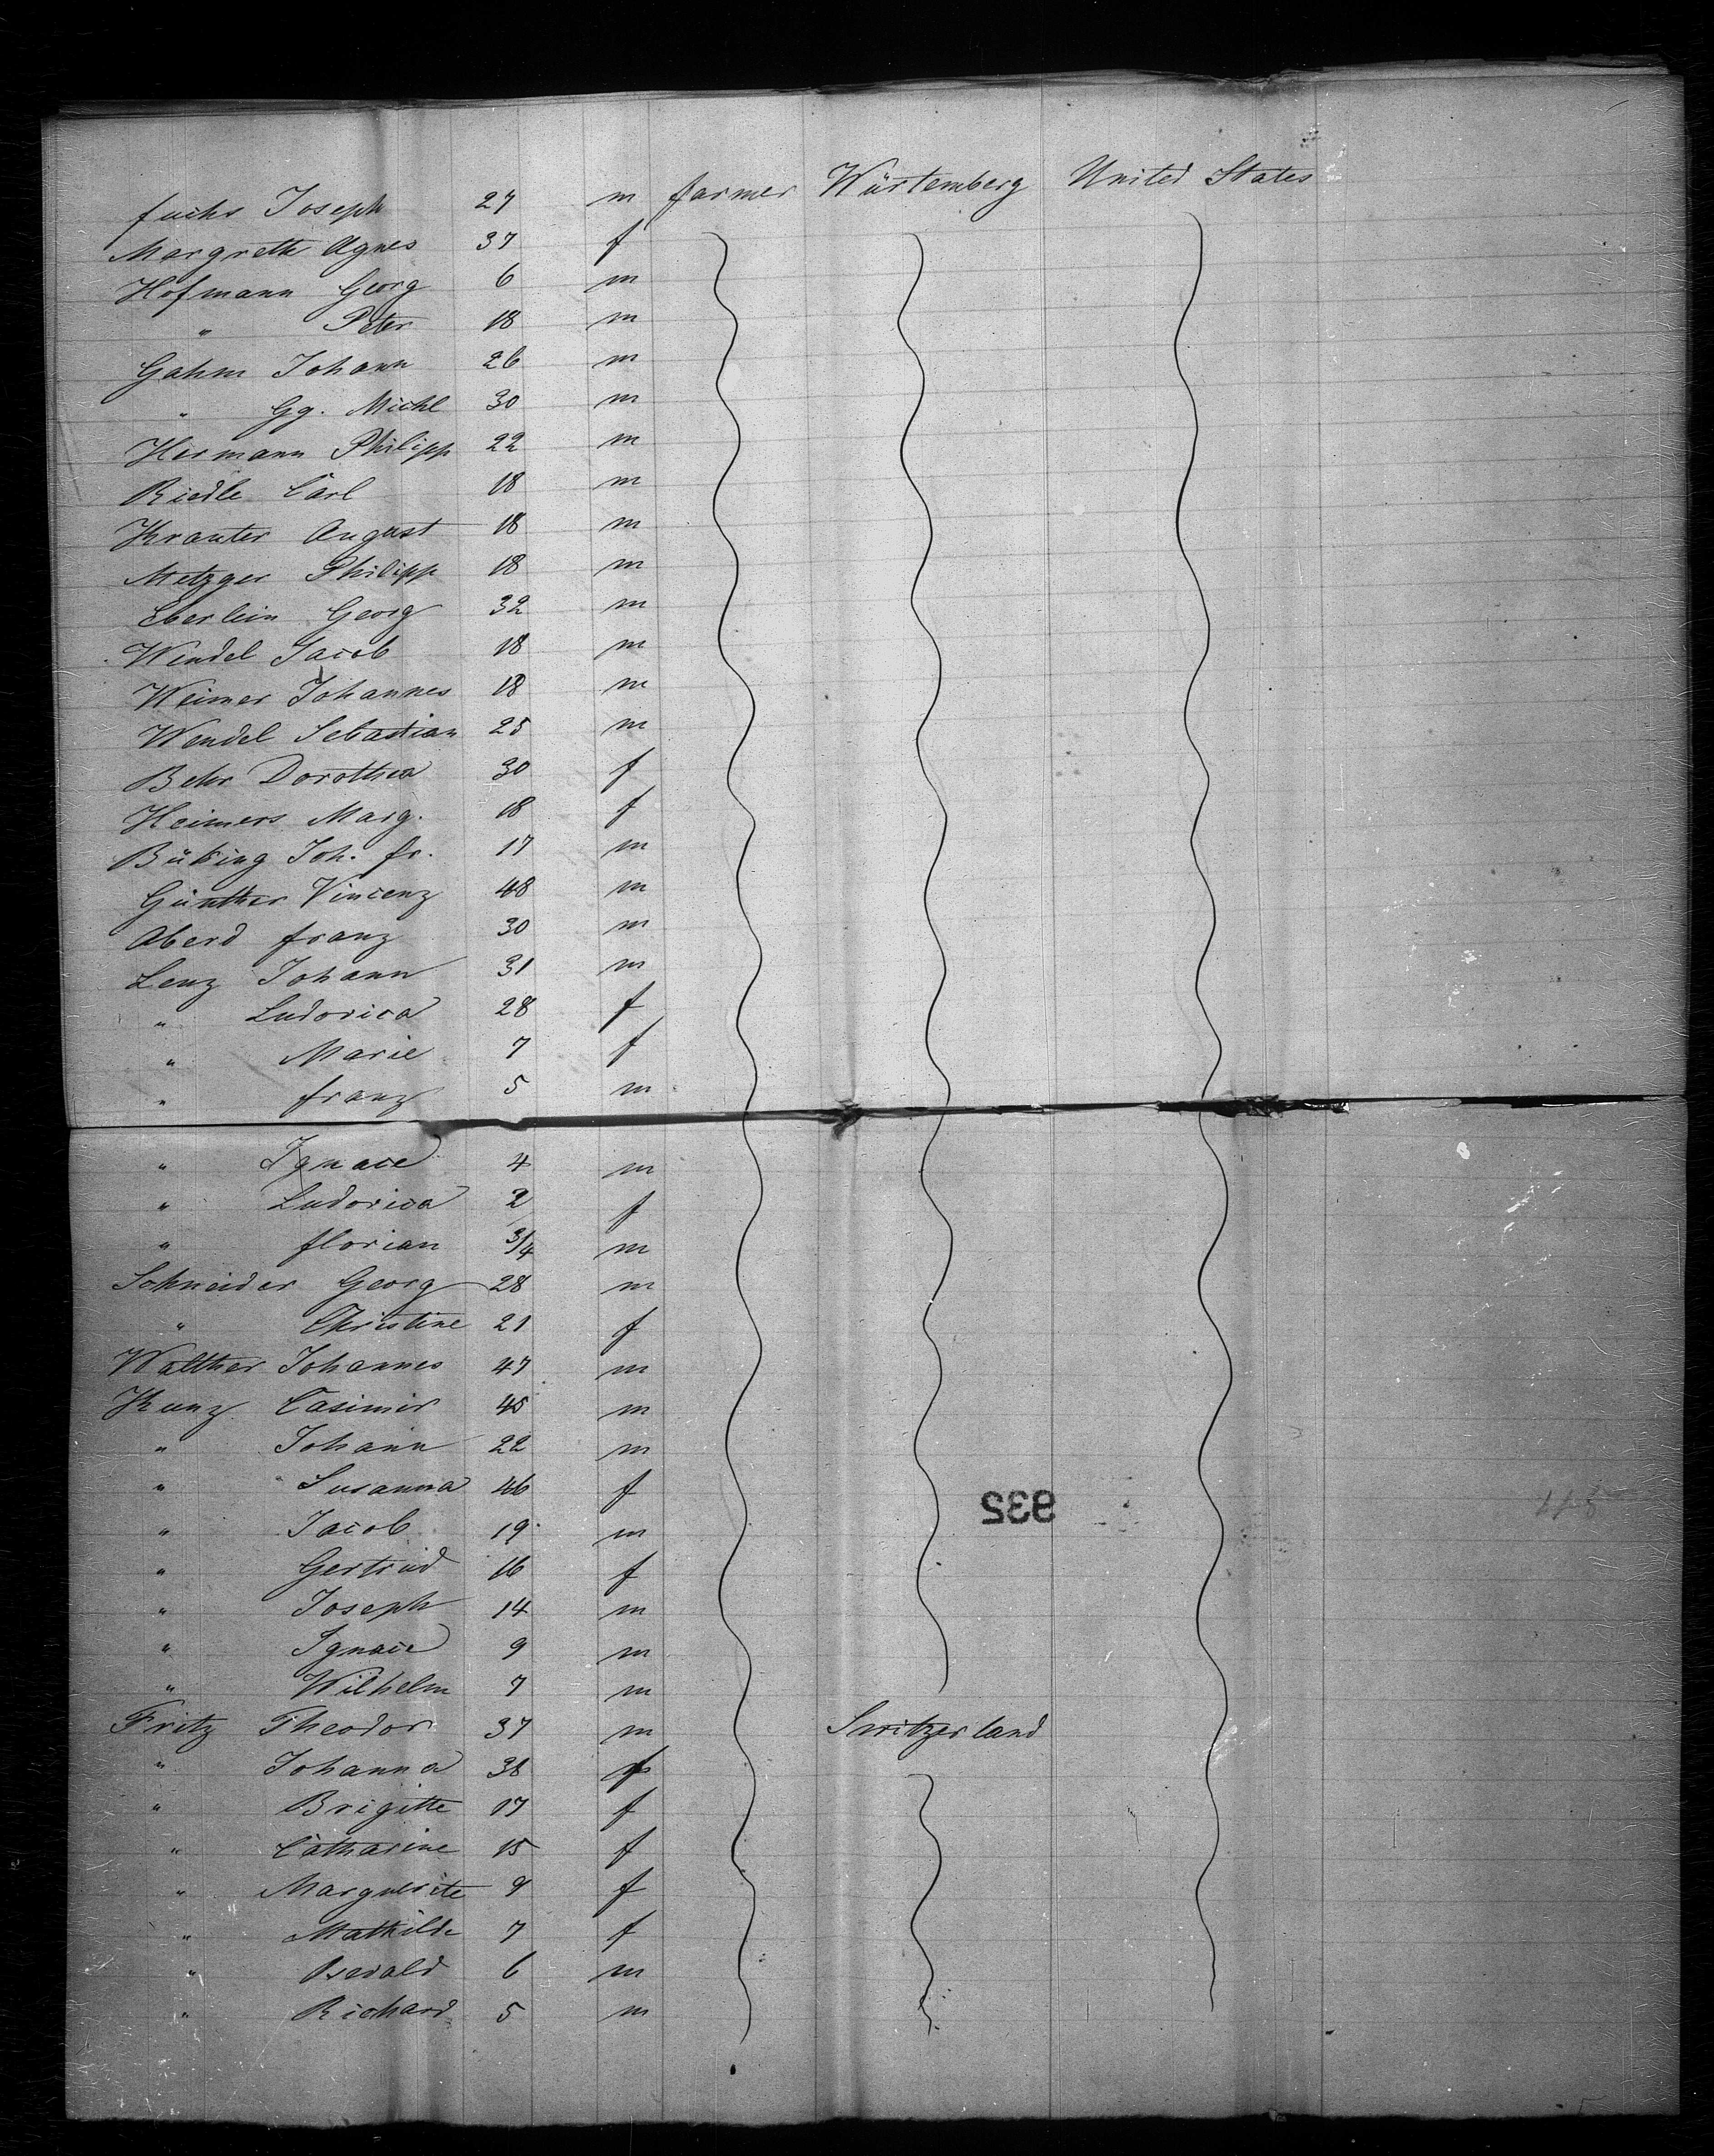 fuchs Joseph 27 m farmer Würtemberg United States
Margreth Agnes 37 f
Hofmann Georg 6 m
" Peter 18 m
Gahm Johann 26 m
" Gg. Michl 30 m
Hermann Philipp 22 m
Riedle Carl 18 m
Krauter August 18 m
Metzger Philipp 18 m
Eberlein Georg 32 m
Wendel Jacob 18 m
Weimer Johannes 18 m
Wendel Sebastian 25 m
Behr Dorothea 30 f
Heimers Marg. 18 f
Büking Joh. fr. 17 m
Günther Vincenz 48 m
Aberd franz 30 m
Lenz Johann 31 m
" Ludovica 28 f
" Marie 7 f
" franz 5 m
" Ignace 4 m
" Ludovica 2 f
" florian 3/4 m
Schneider Georg 28 m
" Christine 21 f
Walther Johannes 47 m
Kunz Casimir 45 m
" Johann 22 m
" Susanna 46 f
" Jacob 19 m
" Gertrud 16 f
" Joseph 14 m
" Ignace 9 m
" Wilhelm 7 m
Fritz Theodor 37 m Switzerland
" Johanna 38 f
" Brigitte 17 f
" Catharine 15 f
" Marguerite 9 f
" Mathilde 7 f
" Oswald 6 m
" Richard 5 m
932